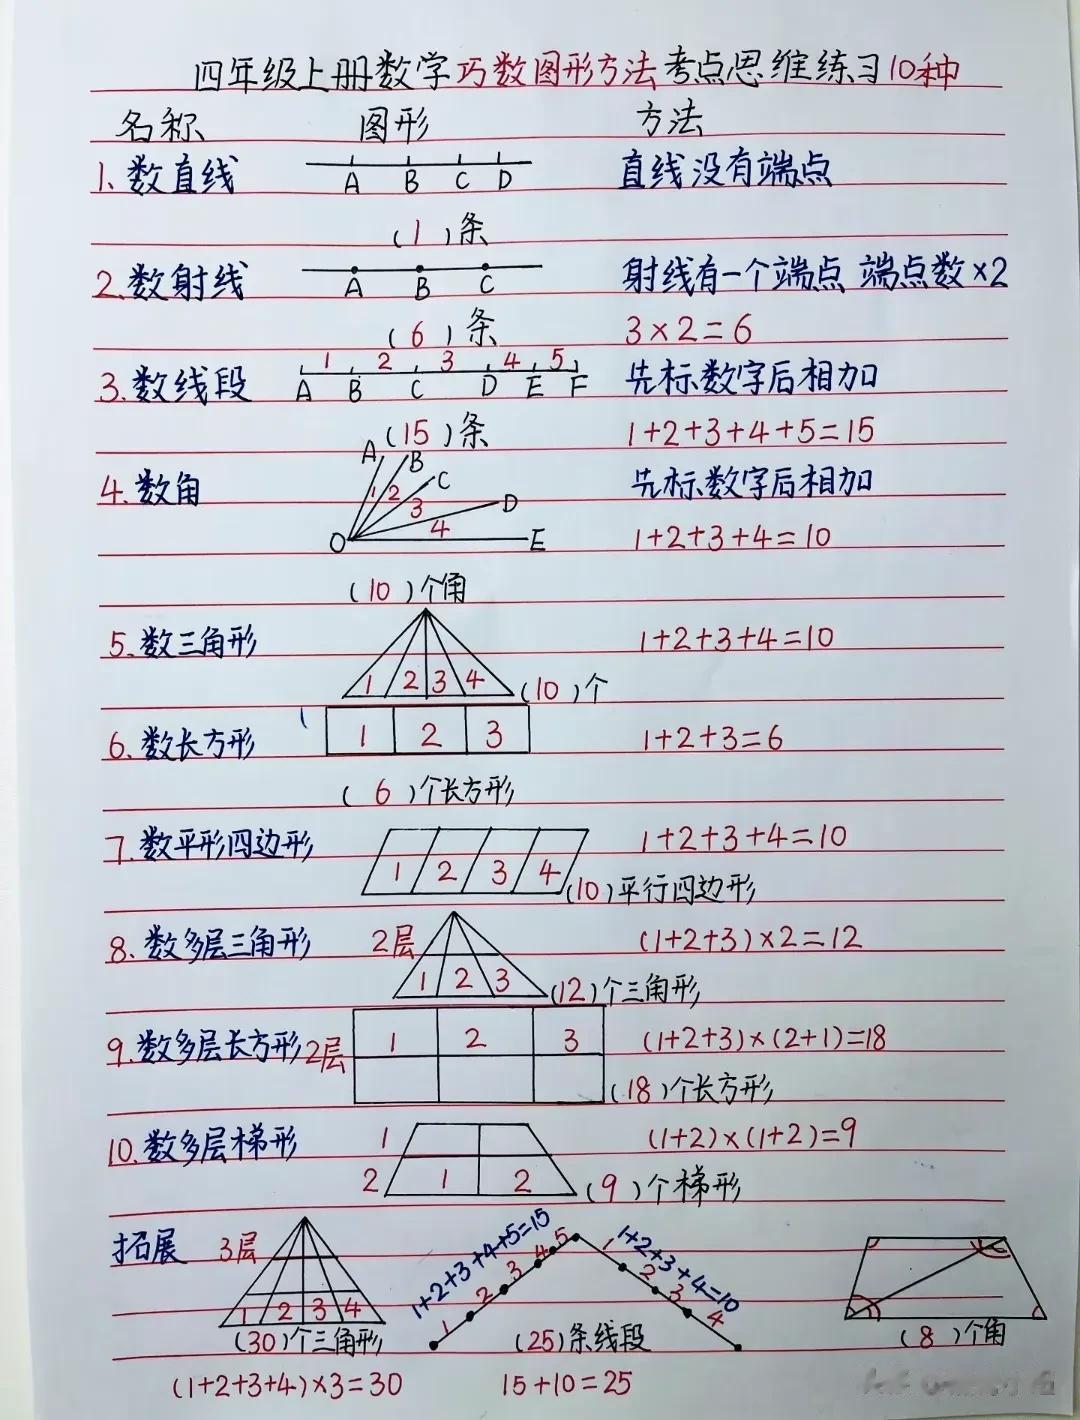 四年级上册数学巧数图形方法考点思维练习10种
名称 图形 方法
1.数直线 A B C D 直线没有端点
(1)条
2.数射线 A B C 射线有一个端点 端点数×2
(6)条 3×2=6
1 2 3 4 5
3.数线段 A B C D E F 先标数字后相加
(15)条 1+2+3+4+5=15
A B
4.数角 1 2 C 先标数字后相加
3 D
4
O E 1+2+3+4=10
(10)个角
5.数三角形 1+2+3+4=10
1 2 3 4 (10)个
6.数长方形 1 2 3 1+2+3=6
(6)个长方形
7.数平形四边形 1+2+3+4=10
1 2 3 4 (10)平行四边形
8.数多层三角形 2层 (1+2+3)×2=12
1 2 3 (12)个三角形
9.数多层长方形 2层 1 2 3 (1+2+3)×(2+1)=18
(18)个长方形
10.数多层梯形 1 (1+2)×(1+2)=9
2 1 2 (9)个梯形
拓展 3层 1+2+3+4+5=15 1+2+3+4=10
1 2 3 4 1 2 3 4 5 1 2 3 4
(30)个三角形 (25)条线段 (8)个角
(1+2+3+4)×3=30 15+10=25